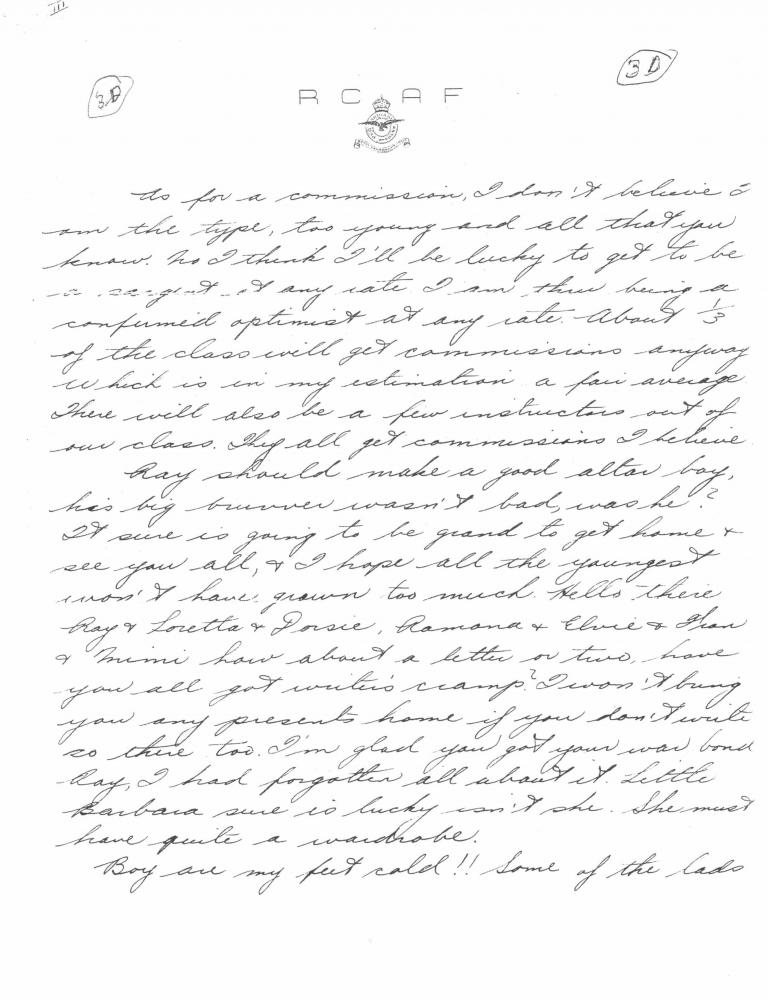 III
3D
3D
R C A F
As for a commission, I don't believe I
am the type, too young and all that you
know. No I think I'll be lucky to get to be
a sargent at any rate I am thru being a
confirmed optimist at any rate. About 1/3
of the class will get commissions anyway
which is in my estimation a fair average
There will also be a few instructors out of
our class. They all get commissions I believe
Ray should make a good altar boy,
his big bruvver wasn't bad, was he?
It sure is going to be grand to get home &
see you all, & I hope all the youngest
won't have grown too much. Hello there
Ray & Loretta & Dorsie, Ramona & Elvie & Fran
& Mimi how about a letter or two, have
you all got writer's cramp? I won't bring
you any presents home if you don't write
so there too. I'm glad you got your war bond
Ray, I had forgotten all about it. Little
Barbara sure is lucky isn't she. She must
have quite a wardrobe.
Boy are my feet cold!! Some of the lads